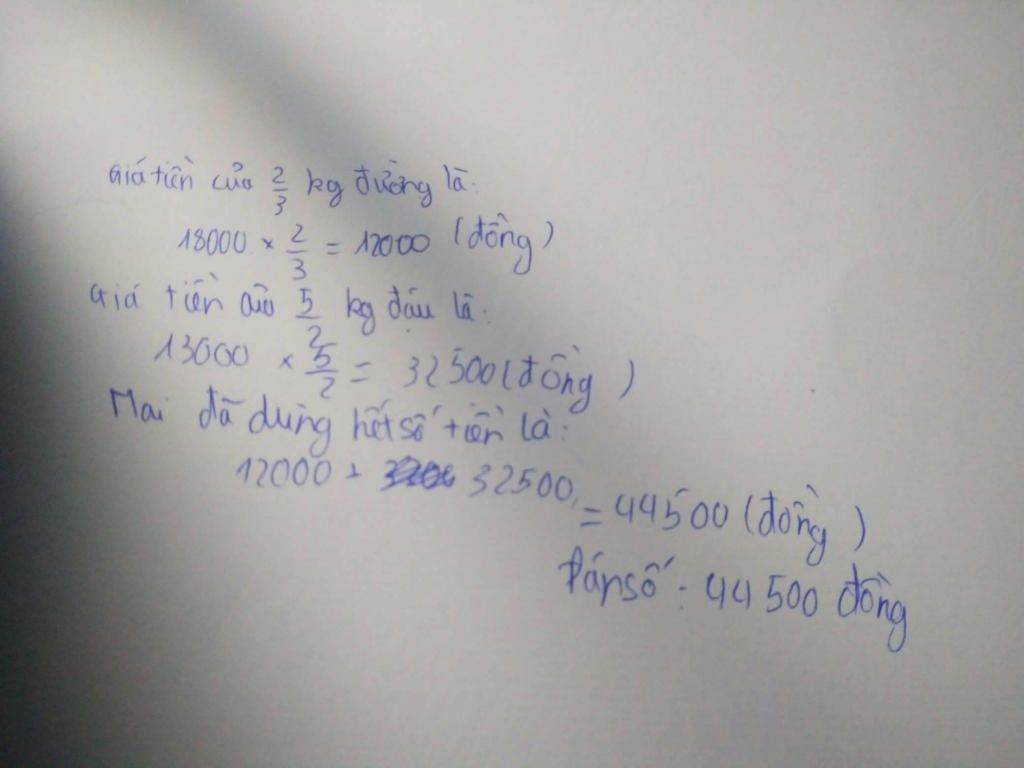 Giá tiền của 2/3 kg đường là:
18000 × 2/3 = 12000 (đồng)
Giá tiền của 5/2 kg đậu là:
13000 × 5/2 = 32500 (đồng)
Mai đã dùng hết số tiền là:
12000 + 32500 = 44500 (đồng)
Đáp số: 44500 đồng